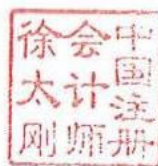 中国注册
会计师
徐太刚